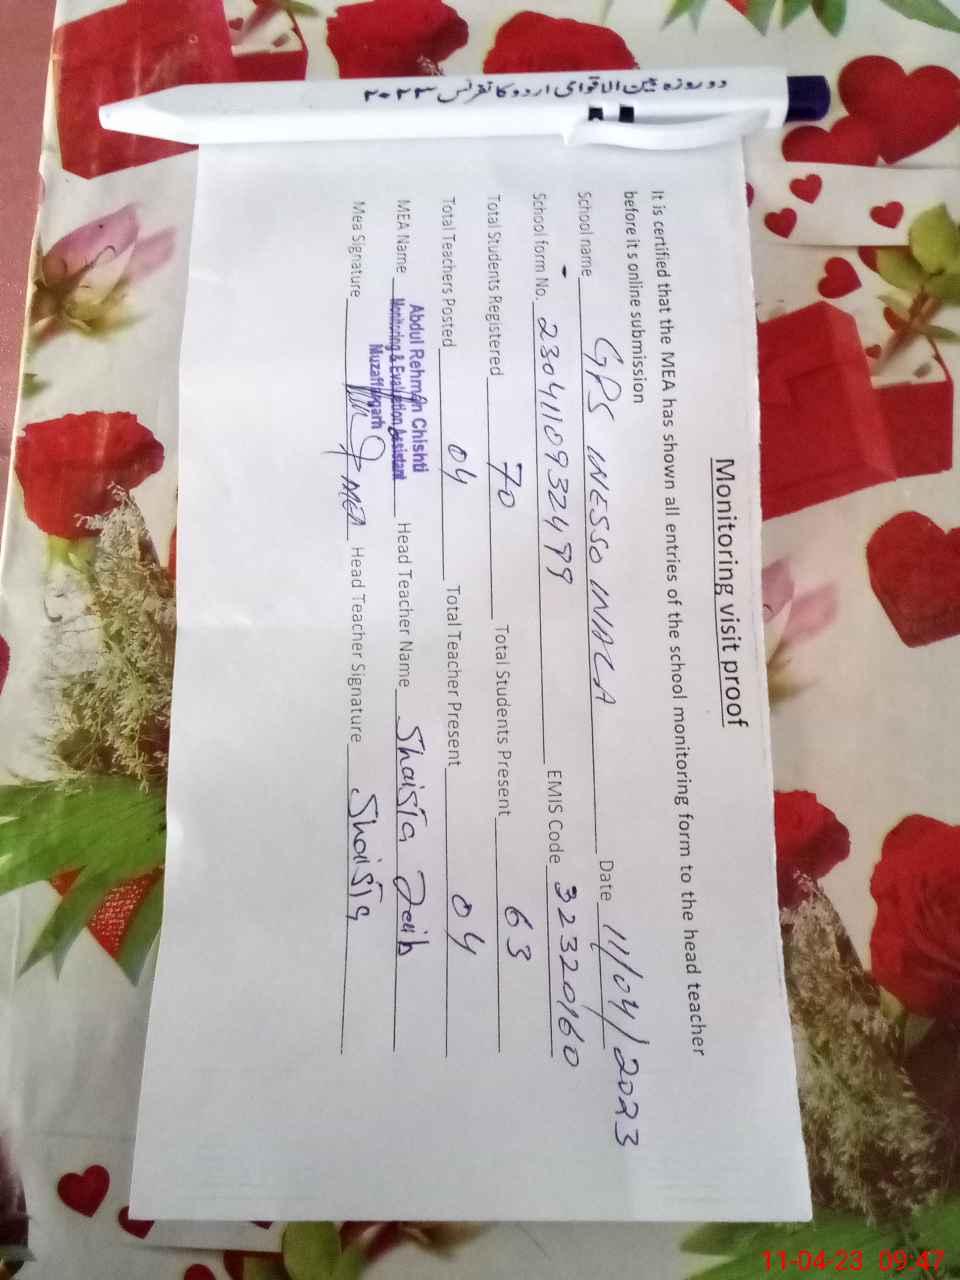 دو روزہ بین الاقوامی اردو کانفرنس ۲۰۲۳
Monitoring visit proof
It is certified that the MEA has shown all entries of the school monitoring form to the head teacher
before it s online submission
School name GPS WESSO WALA Date 11/04/2023
School form No. 230411093249 EMIS Code 32320160
Total Students Registered 70 Total Students Present 63
Total Teachers Posted 04 Total Teacher Present 04
MEA Name Abdul Rehman Chishti Head Teacher Name Shaista
Monitoring & Evaluation Assistant
Muzaffargarh
Mea Signature MEA Head Teacher Signature Shaista
11-04-23 09:47